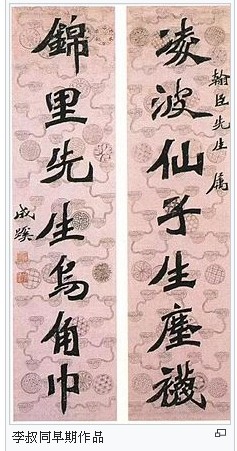 翰臣先生屬
凌波仙子生塵襪
錦里先生烏角巾
成蹊
李叔同早期作品